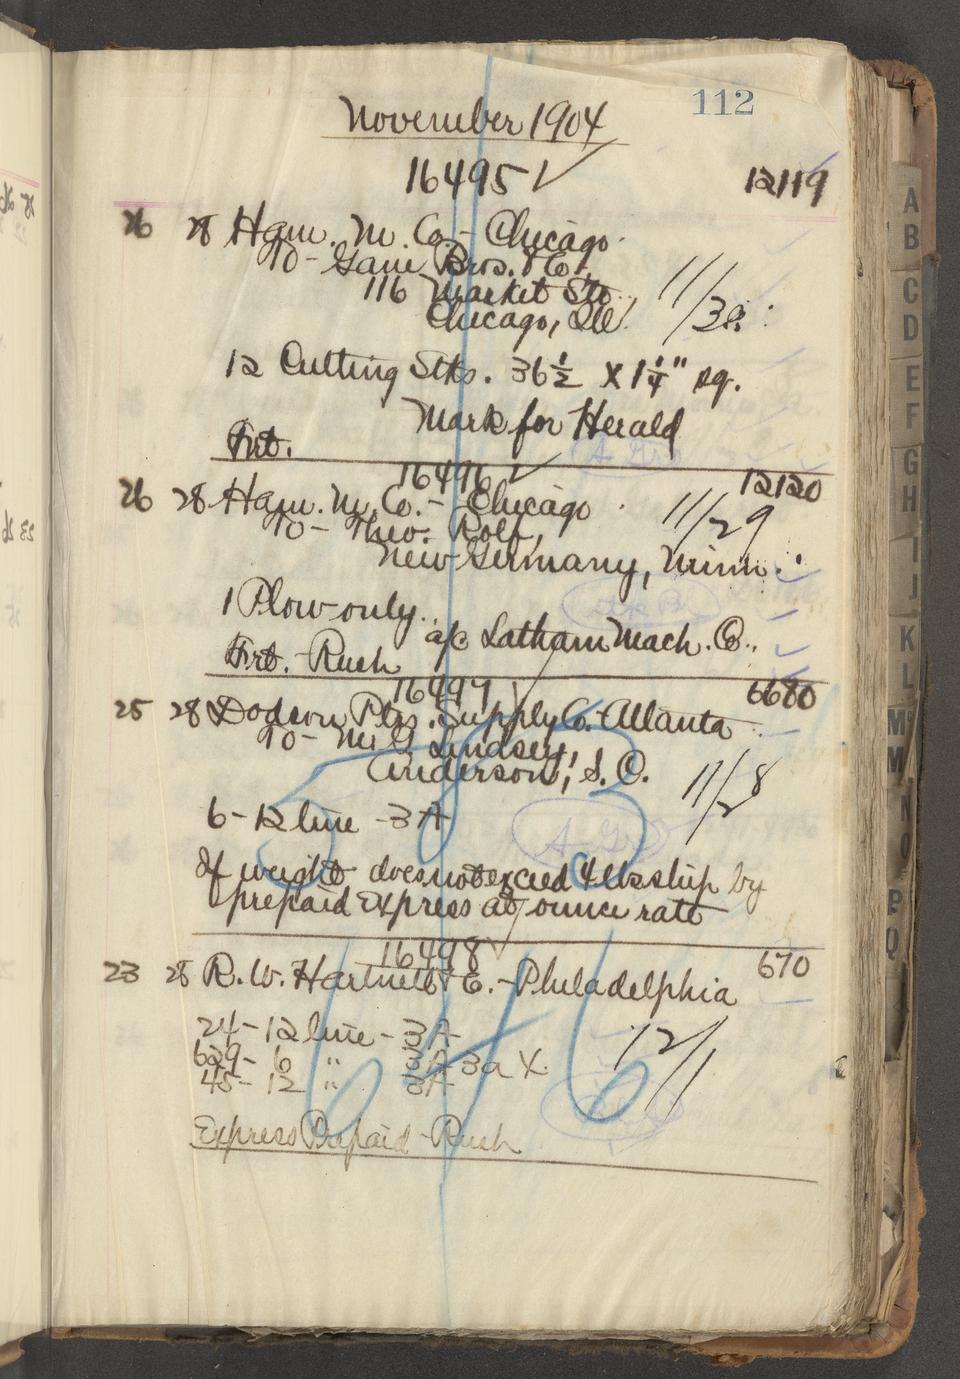 112
November 1904
16495 ✓ 12119
26 28 Ham. M. Co. - Chicago.
To - Gane Bros. & Co.,
116 Market St.,
Chicago, Ill. 11/30
12 Cutting Stks. 36 1/2 X 1 1/4" sq.
Mark for Herald
Frt.
16496 ✓ 12120
26 28 Ham. M. Co. - Chicago 11/29
To - Theo. Rolf,
New Germany, Minn.
1 Plow only.
a/c Latham Mach. Co.
Frt. - Rush
16497 ✓ 6680
25 28 Dodson Ptrs. Supply Co. - Atlanta
To - Lindsey,
Anderson, S. C. 11/28
6 - 12 line - 3A
If weight does not exceed 4 lbs ship by
prepaid Express at ounce rate
16498 ✓ 670
23 28 R. W. Hartnett & - Philadelphia
24 - 12 line - 3A 12/1
629 - 6 " 3A 3a X
45 - 12 " 3A
Express Prepaid - Rush
A
B
C
D
E
F
G
H
I
J
K
L
M
M
N
O
P
Q